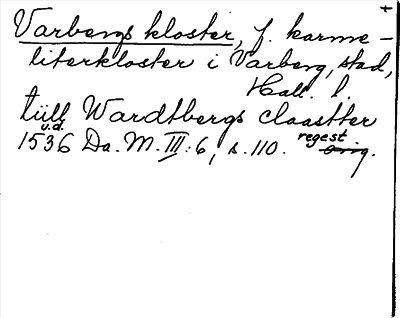 Varbergs kloster, f. karme-
literkloster i Varberg, stad,
Hall. l.
tüll Wardtbergs claastter
u.d.
1536 Da. M. III: 6, s. 110. regest orig.